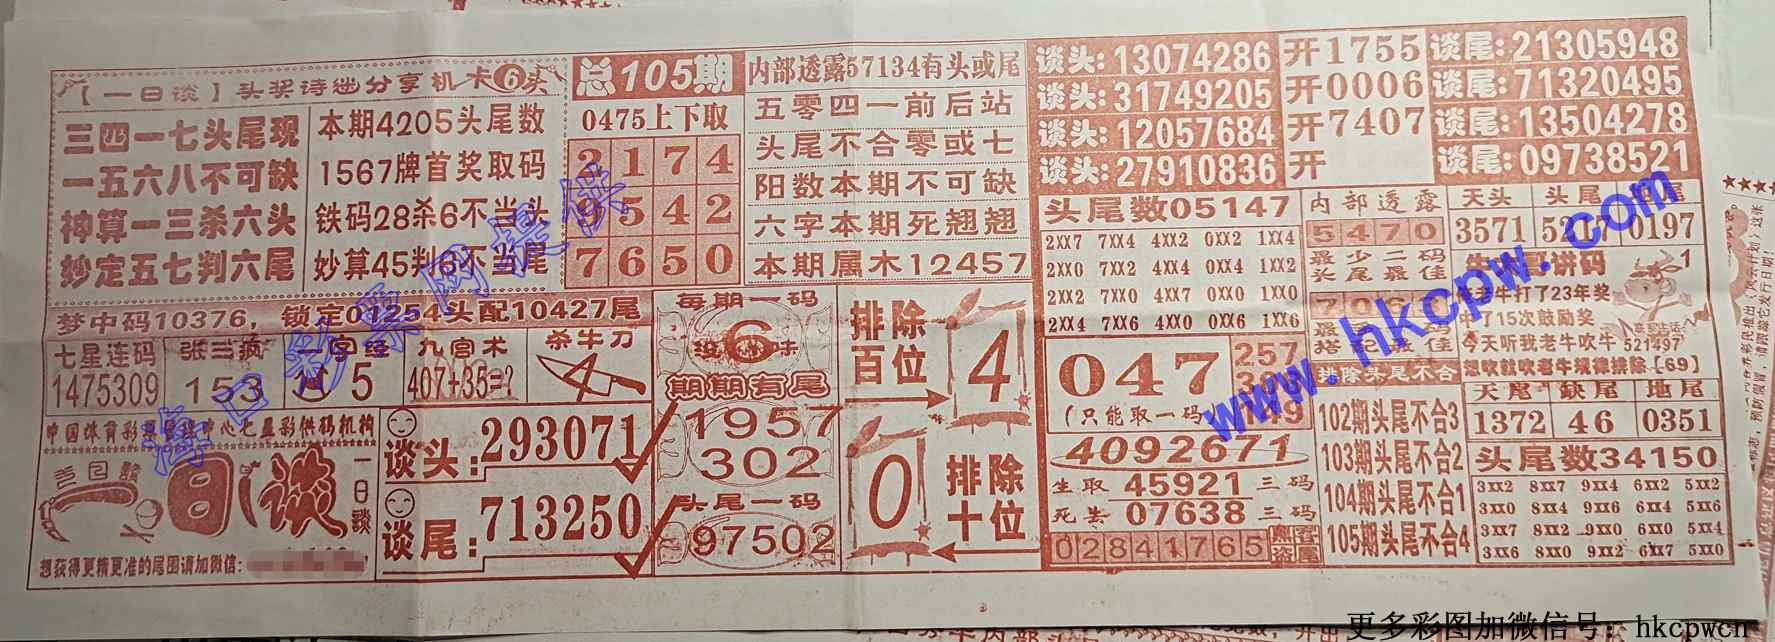 【一日谈】头奖诗谜分享机卡6头
三四一七头尾现
一五六八不可缺
神算一三杀六头
妙定五七判六尾
本期4205头尾数
1567牌首奖取码
铁码28杀6不当头
妙算45判6不当尾
总105期
0475上下取
2174
9542
7650
内部透露57134有头或尾
五零四一前后站
头尾不合零或七
阳数本期不可缺
六字本期死翘翘
本期属木12457
梦中码10376，锁定01254头配10427尾
七星连码
1475309
张三疯
153
一字经
5
九宫术
407+35=?
杀牛刀
4
每期一码
6
期期有尾
1957
302
头尾一码
97502
排除
百位
4
0
排除
十位
一日谈
一日谈
想获得更精更准的尾图请加微信:
谈头:293071
谈尾:713250
谈头:13074286
谈头:31749205
谈头:12057684
谈头:27910836
开1755
开0006
开7407
开
谈尾:21305948
谈尾:71320495
谈尾:13504278
谈尾:09738521
头尾数05147
2XX7 7XX4 4XX2 0XX2 1XX4
2XX0 7XX2 4XX4 0XX4 1XX2
2XX2 7XX0 4XX7 0XX0 1XX0
2XX4 7XX6 4XX0 0XX6 1XX6
047
(只能取一码
257
4092671
生取45921三码
死去07638三码
02841765
内部透露
5470
最少二码
头尾最佳
排除头尾不合
102期头尾不合3
103期头尾不合2
104期头尾不合1
105期头尾不合4
天头
3571
头尾
0197
老牛打了23年奖
中了15次鼓励奖
今天听我老牛吹牛
想吹就吹老牛规律排除【69】
521497
天尾
1372
缺尾
46
地尾
0351
头尾数34150
3XX2 8XX7 9XX4 6XX2 5XX2
3XX0 8XX4 9XX6 6XX4 5XX6
3XX7 8XX2 9XX0 6XX0 5XX4
3XX6 8XX0 9XX2 6XX7 5XX0
海口彩票网提供
www.hkcpw.com
更多彩图加微信号：hkcpwcn